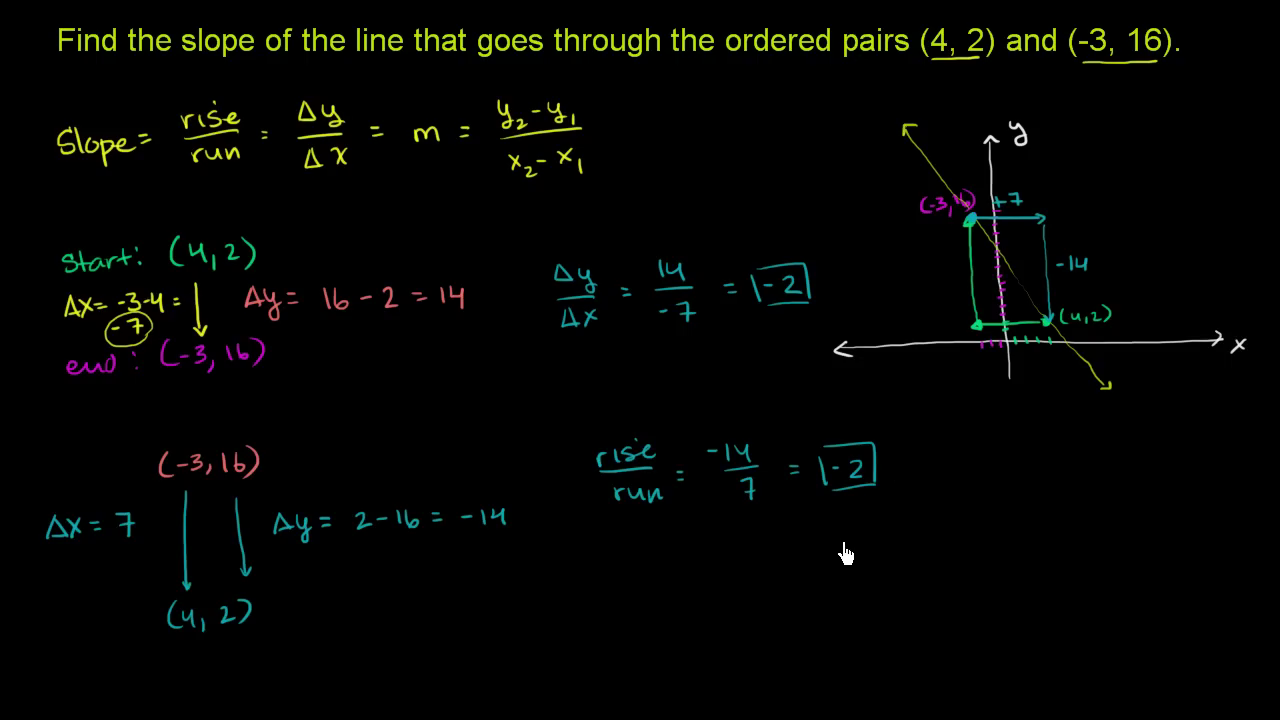 Find the slope of the line that goes through the ordered pairs (4, 2) and (-3, 16).
Slope = rise/run = Δy/Δx = m = (y₂-y₁)/(x₂-x₁)
Start: (4,2)
Δx = -3-4 = -7
Δy = 16-2 = 14
end: (-3, 16)
Δy/Δx = 14/-7 = -2
y
(-3,16)
+7
-14
(4,2)
x
(-3, 16)
Δx = 7
Δy = 2-16 = -14
(4, 2)
rise/run = -14/7 = -2